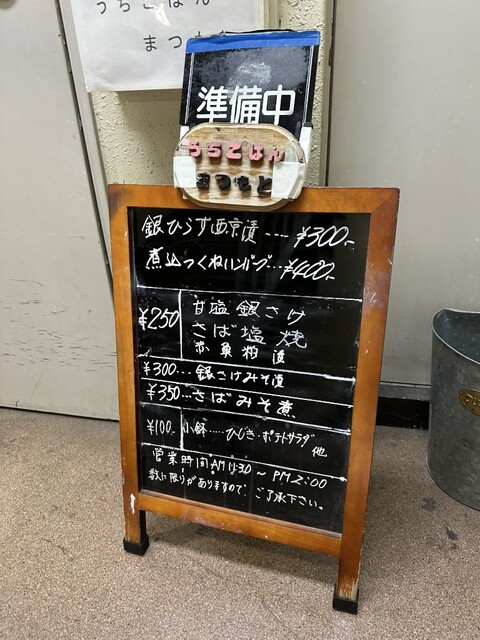 うちごはん
まつ
準備中
うちごはん
まつもと
銀ひらす西京漬----¥300-
煮込つくねハンバーグ...¥400-
¥250
甘塩銀さけ
さば塩焼
赤魚粕漬
¥300...銀さけみそ漬
¥350...さばみそ煮
¥100- 小鉢.....ひじき・ポテトサラダ
他
営業時間AM11:30～PM2:00
数に限りがありますので、ご了承下さい。